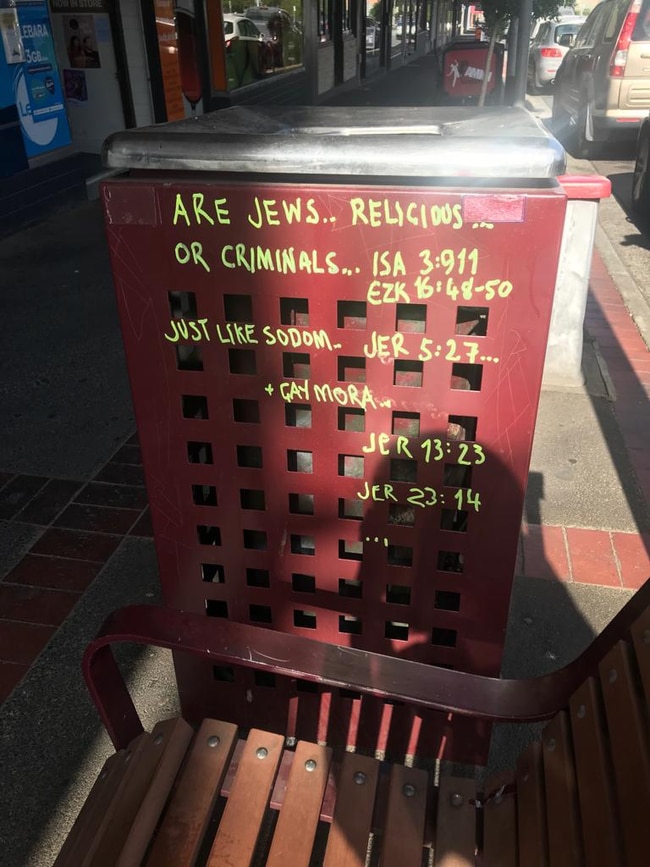 NOW IN STORE
EBARA
3GB
ARE JEWS.. RELIGIOUS...
OR CRIMINALS... ISA 3:911
EZK 16:48-50
JUST LIKE SODOM.. JER 5:27...
+ GAYMORA..
JER 13:23
JER 23:14
...